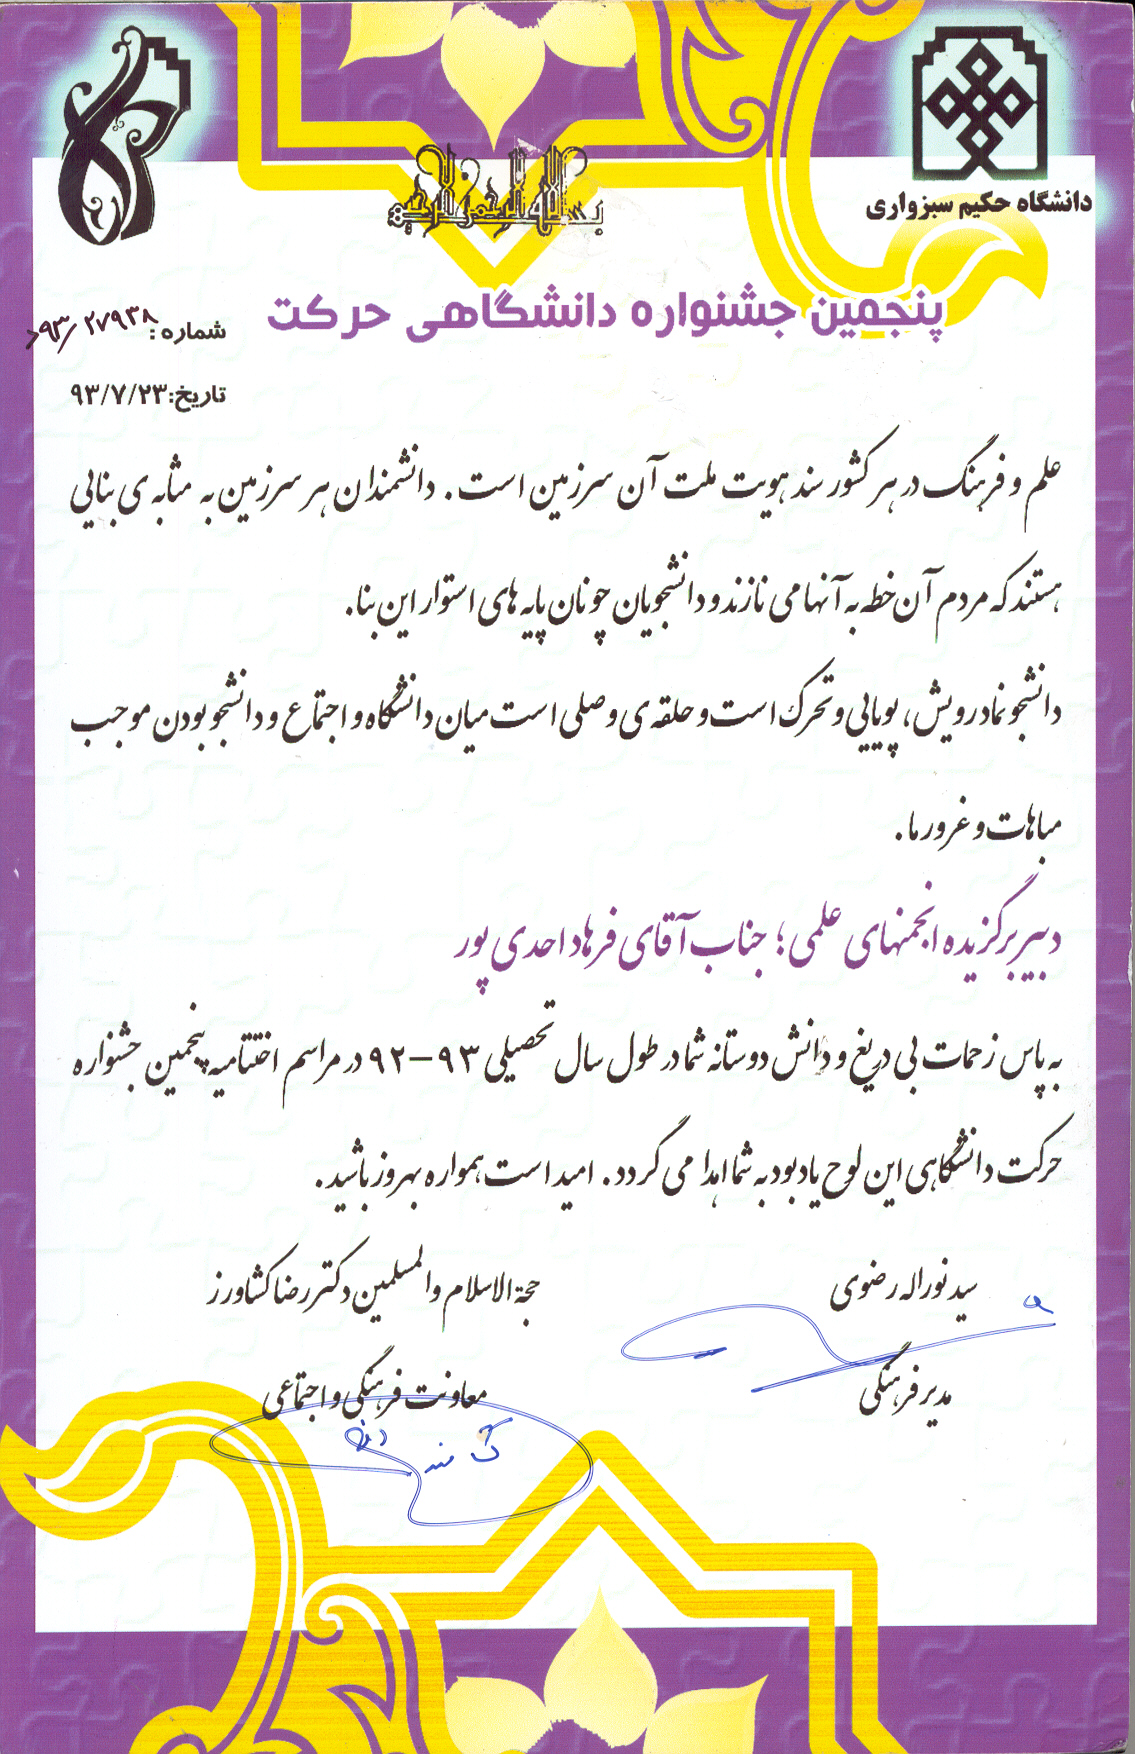 بسم الله الرحمن الرحیم
دانشگاه حکیم سبزواری
پنجمین جشنواره دانشگاهی حرکت
شماره: ۲۷۹۳۸/۹۳/د
تاریخ: ۹۳/۷/۲۳
علم و فرهنگ در هر کشور سند هویت ملت آن سرزمین است. دانشمندان هر سرزمین به مثابه ی بنایی
هستند که مردم آن خطه به آنها می نازند و دانشجویان چونان پایه های استوار این بنا.
دانشجو نماد رویش، پویایی و تحرک است و حلقه ی وصلی است میان دانشگاه و اجتماع و دانشجو بودن موجب
مباهات و غرور ما.
دبیر برگزیده انجمنهای علمی؛ جناب آقای فرهاد احدی پور
به پاس زحمات بی دریغ و دانش دوستانه شما در طول سال تحصیلی ۹۳-۹۲ در مراسم اختتامیه پنجمین جشنواره
حرکت دانشگاهی این لوح یادبود به شما اهدا می گردد. امید است همواره بهروز باشید.
سید نوراله رضوی
مدیر فرهنگی
حجة الاسلام والمسلمین دکتر رضا کشاورز
معاونت فرهنگی و اجتماعی